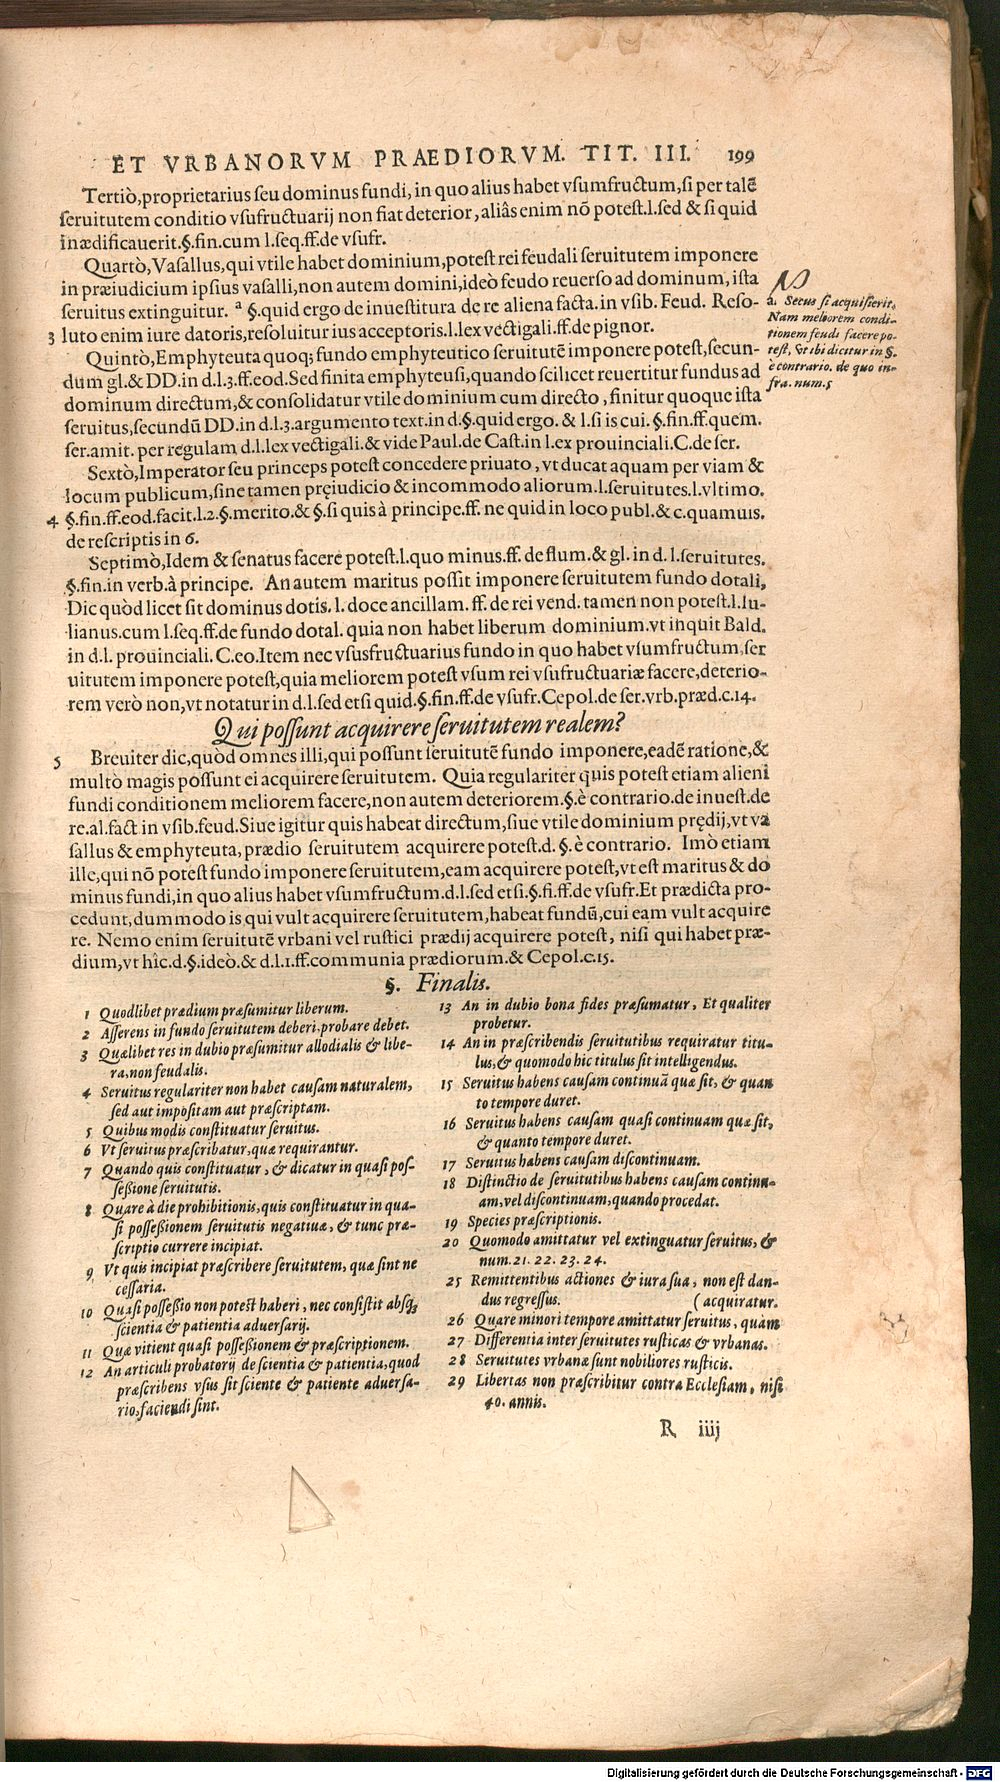 ET VRBANORVM PRAEDIORVM. TIT. III. 199
Tertiò, proprietarius seu dominus fundi, in quo alius habet vsumfructum, si per talẽ
seruitutem conditio vsufructuarij non fiat deterior, aliâs enim nõ potest. l. sed & si quid
inædificauerit. §. fin. cum l. seq. ff. de vsufr.
Quartò, Vasallus, qui vtile habet dominium, potest rei feudali seruitutem imponere
in præiudicium ipsius vasalli, non autem domini, ideò feudo reuerso ad dominum, ista
seruitus extinguitur. ª §. quid ergo de inuestitura de re aliena facta. in vsib. Feud. Reso-
3 luto enim iure datoris, resoluitur ius acceptoris. l. lex vectigali. ff. de pignor.
Quintò, Emphyteuta quoq; fundo emphyteutico seruitutẽ imponere potest, secun-
dum gl. & DD. in d. l. 3. ff. eod. Sed finita emphyteusi, quando scilicet reuertitur fundus ad
dominum directum, & consolidatur vtile dominium cum directo, finitur quoque ista
seruitus, secundũ DD. in d. l. 3. argumento text. in d. §. quid ergo. & l. si is cui. §. fin. ff. quem.
ser. amit. per regulam d. l. lex vectigali. & vide Paul. de Cast. in l. ex prouinciali. C. de ser.
Sextò, Imperator seu princeps potest concedere priuato, vt ducat aquam per viam &
locum publicum, sine tamen pręiudicio & incommodo aliorum. l. seruitutes. l. vltimo.
4 §. fin. ff. eod. facit. l. 2. §. merito. & §. si quis à principe. ff. ne quid in loco publ. & c. quamuis.
de rescriptis in 6.
Septimò, Idem & senatus facere potest. l. quo minus. ff. de flum. & gl. in d. l. seruitutes.
§. fin. in verb. à principe. An autem maritus possit imponere seruitutem fundo dotali,
Dic quòd licet sit dominus dotis. l. doce ancillam. ff. de rei vend. tamen non potest. l. Iu-
lianus. cum l. seq. ff. de fundo dotal. quia non habet liberum dominium. vt inquit Bald.
in d. l. prouinciali. C. eo. Item nec vsusfructuarius fundo in quo habet vsumfructum, ser
uitutem imponere potest, quia meliorem potest vsum rei vsufructuariæ facere, deterio-
rem verò non, vt notatur in d. l. sed etsi quid. §. fin. ff. de vsufr. Cepol. de ser. vrb. præd. c. 14.
a. Secus si acquisierit.
Nam meliorem condi-
tionem feudi facere po-
test, vt ibi dicitur in §.
è contrario. de quo in-
fra. num. 5
Qui possunt acquirere seruitutem realem?
5 Breuiter dic, quòd omnes illi, qui possunt seruitutẽ fundo imponere, eadẽ ratione, &
multò magis possunt ei acquirere seruitutem. Quia regulariter quis potest etiam alieni
fundi conditionem meliorem facere, non autem deteriorem. §. è contrario. de inuest. de
re. al. fact in vsib. feud. Siue igitur quis habeat directum, siue vtile dominium prędij, vt va
sallus & emphyteuta, prædio seruitutem acquirere potest. d. §. è contrario. Imò etiam
ille, qui nõ potest fundo imponere seruitutem, eam acquirere potest, vt est maritus & do
minus fundi, in quo alius habet vsumfructum. d. l. sed etsi. §. fi. ff. de vsufr. Et prædicta pro-
cedunt, dummodo is qui vult acquirere seruitutem, habeat fundũ, cui eam vult acquire
re. Nemo enim seruitutẽ vrbani vel rustici prædij acquirere potest, nisi qui habet præ-
dium, vt hîc. d. §. ideò. & d. l. 1. ff. communia prædiorum. & Cepol. c. 15.
§. Finalis.
1 Quodlibet prædium præsumitur liberum.
2 Asserens in fundo seruitutem deberi, probare debet.
3 Quælibet res in dubio præsumitur allodialis & libe-
ra, non feudalis.
4 Seruitus regulariter non habet causam naturalem,
sed aut impositam aut præscriptam.
5 Quibus modis constituatur seruitus.
6 Vt seruitus præscribatur, quæ requirantur.
7 Quando quis constituatur, & dicatur in quasi pos-
seßione seruitutis.
8 Quare à die prohibitionis, quis constituatur in qua-
si posseßionem seruitutis negatiuæ, & tunc præ-
scriptio currere incipiat.
9 Vt quis incipiat præscribere seruitutem, quæ sint ne
cessaria.
10 Quasi posseßio non potest haberi, nec consistit absq;
scientia & patientia aduersarij.
11 Quæ vitient quasi posseßionem & præscriptionem.
12 An articuli probatorij de scientia & patientia, quod
præscribens vsus sit sciente & patiente aduersa-
rio, faciendi sint.
13 An in dubio bona fides præsumatur, Et qualiter
probetur.
14 An in præscribendis seruitutibus requiratur titu-
lus, & quomodo hic titulus sit intelligendus.
15 Seruitus habens causam continuã quæ sit, & quan
to tempore duret.
16 Seruitus habens causam quasi continuam quæ sit,
& quanto tempore duret.
17 Seruitus habens causam discontinuam.
18 Distinctio de seruitutibus habens causam continu-
am, vel discontinuam, quando procedat.
19 Species præscriptionis.
20 Quomodo amittatur vel extinguatur seruitus, &
num. 21. 22. 23. 24.
25 Remittentibus actiones & iura sua, non est dan-
dus regressus. ( acquiratur.
26 Quare minori tempore amittatur seruitus, quàm
27 Differentia inter seruitutes rusticas & vrbanas.
28 Seruitutes vrbanæ sunt nobiliores rusticis.
29 Libertas non præscribitur contra Ecclesiam, nisi
40. annis.
R iiij
Digitalisierung gefördert durch die Deutsche Forschungsgemeinschaft - DFG